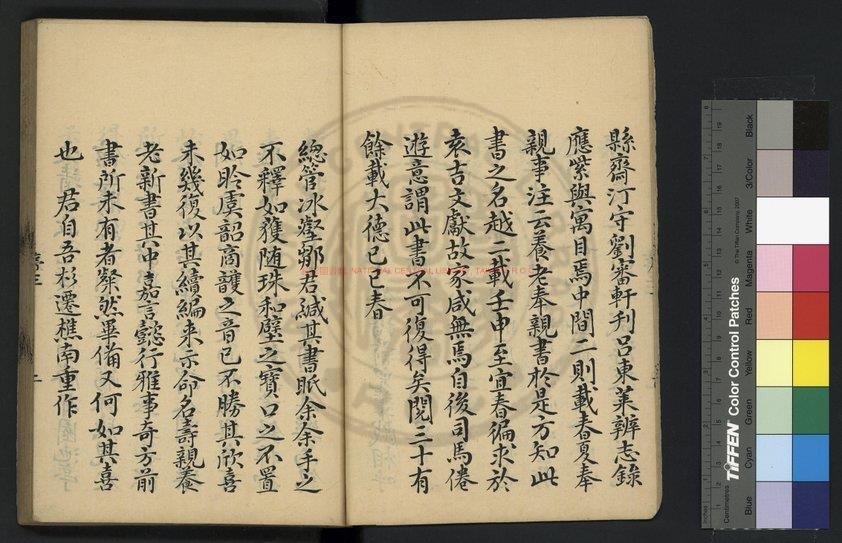 縣齋汀守劉審軒刋呂東萊辨志錄
應紫與寓目焉中間二則載春夏奉
親事注云養老奉親書於是方知此
書之名越二載壬申至宜春徧求於
袁吉文獻故家咸無焉自後司馬倦
遊意謂此書不可復得矣閱三十有
餘載大德已巳春
總管冰壑鄒君緘其書眎余余手之
不釋如獲随珠和璧之寶口之不置
如聆虞韶商頀之音已不勝其欣喜
未幾復以其續編来示命名壽親養
老新書其中嘉言懿行雅事奇方前
書所未有者粲然畢備又何如其喜
也 君自吾杉遷樵南重作
NATIONAL CENTRAL LIBRARY, TAIWAN, R.O.C.
TIFFEN Color Control Patches
© The Tiffen Company, 2007
Centimetres
Inches
Blue
Cyan
Green
Yellow
Red
Magenta
White
3/Color
Black